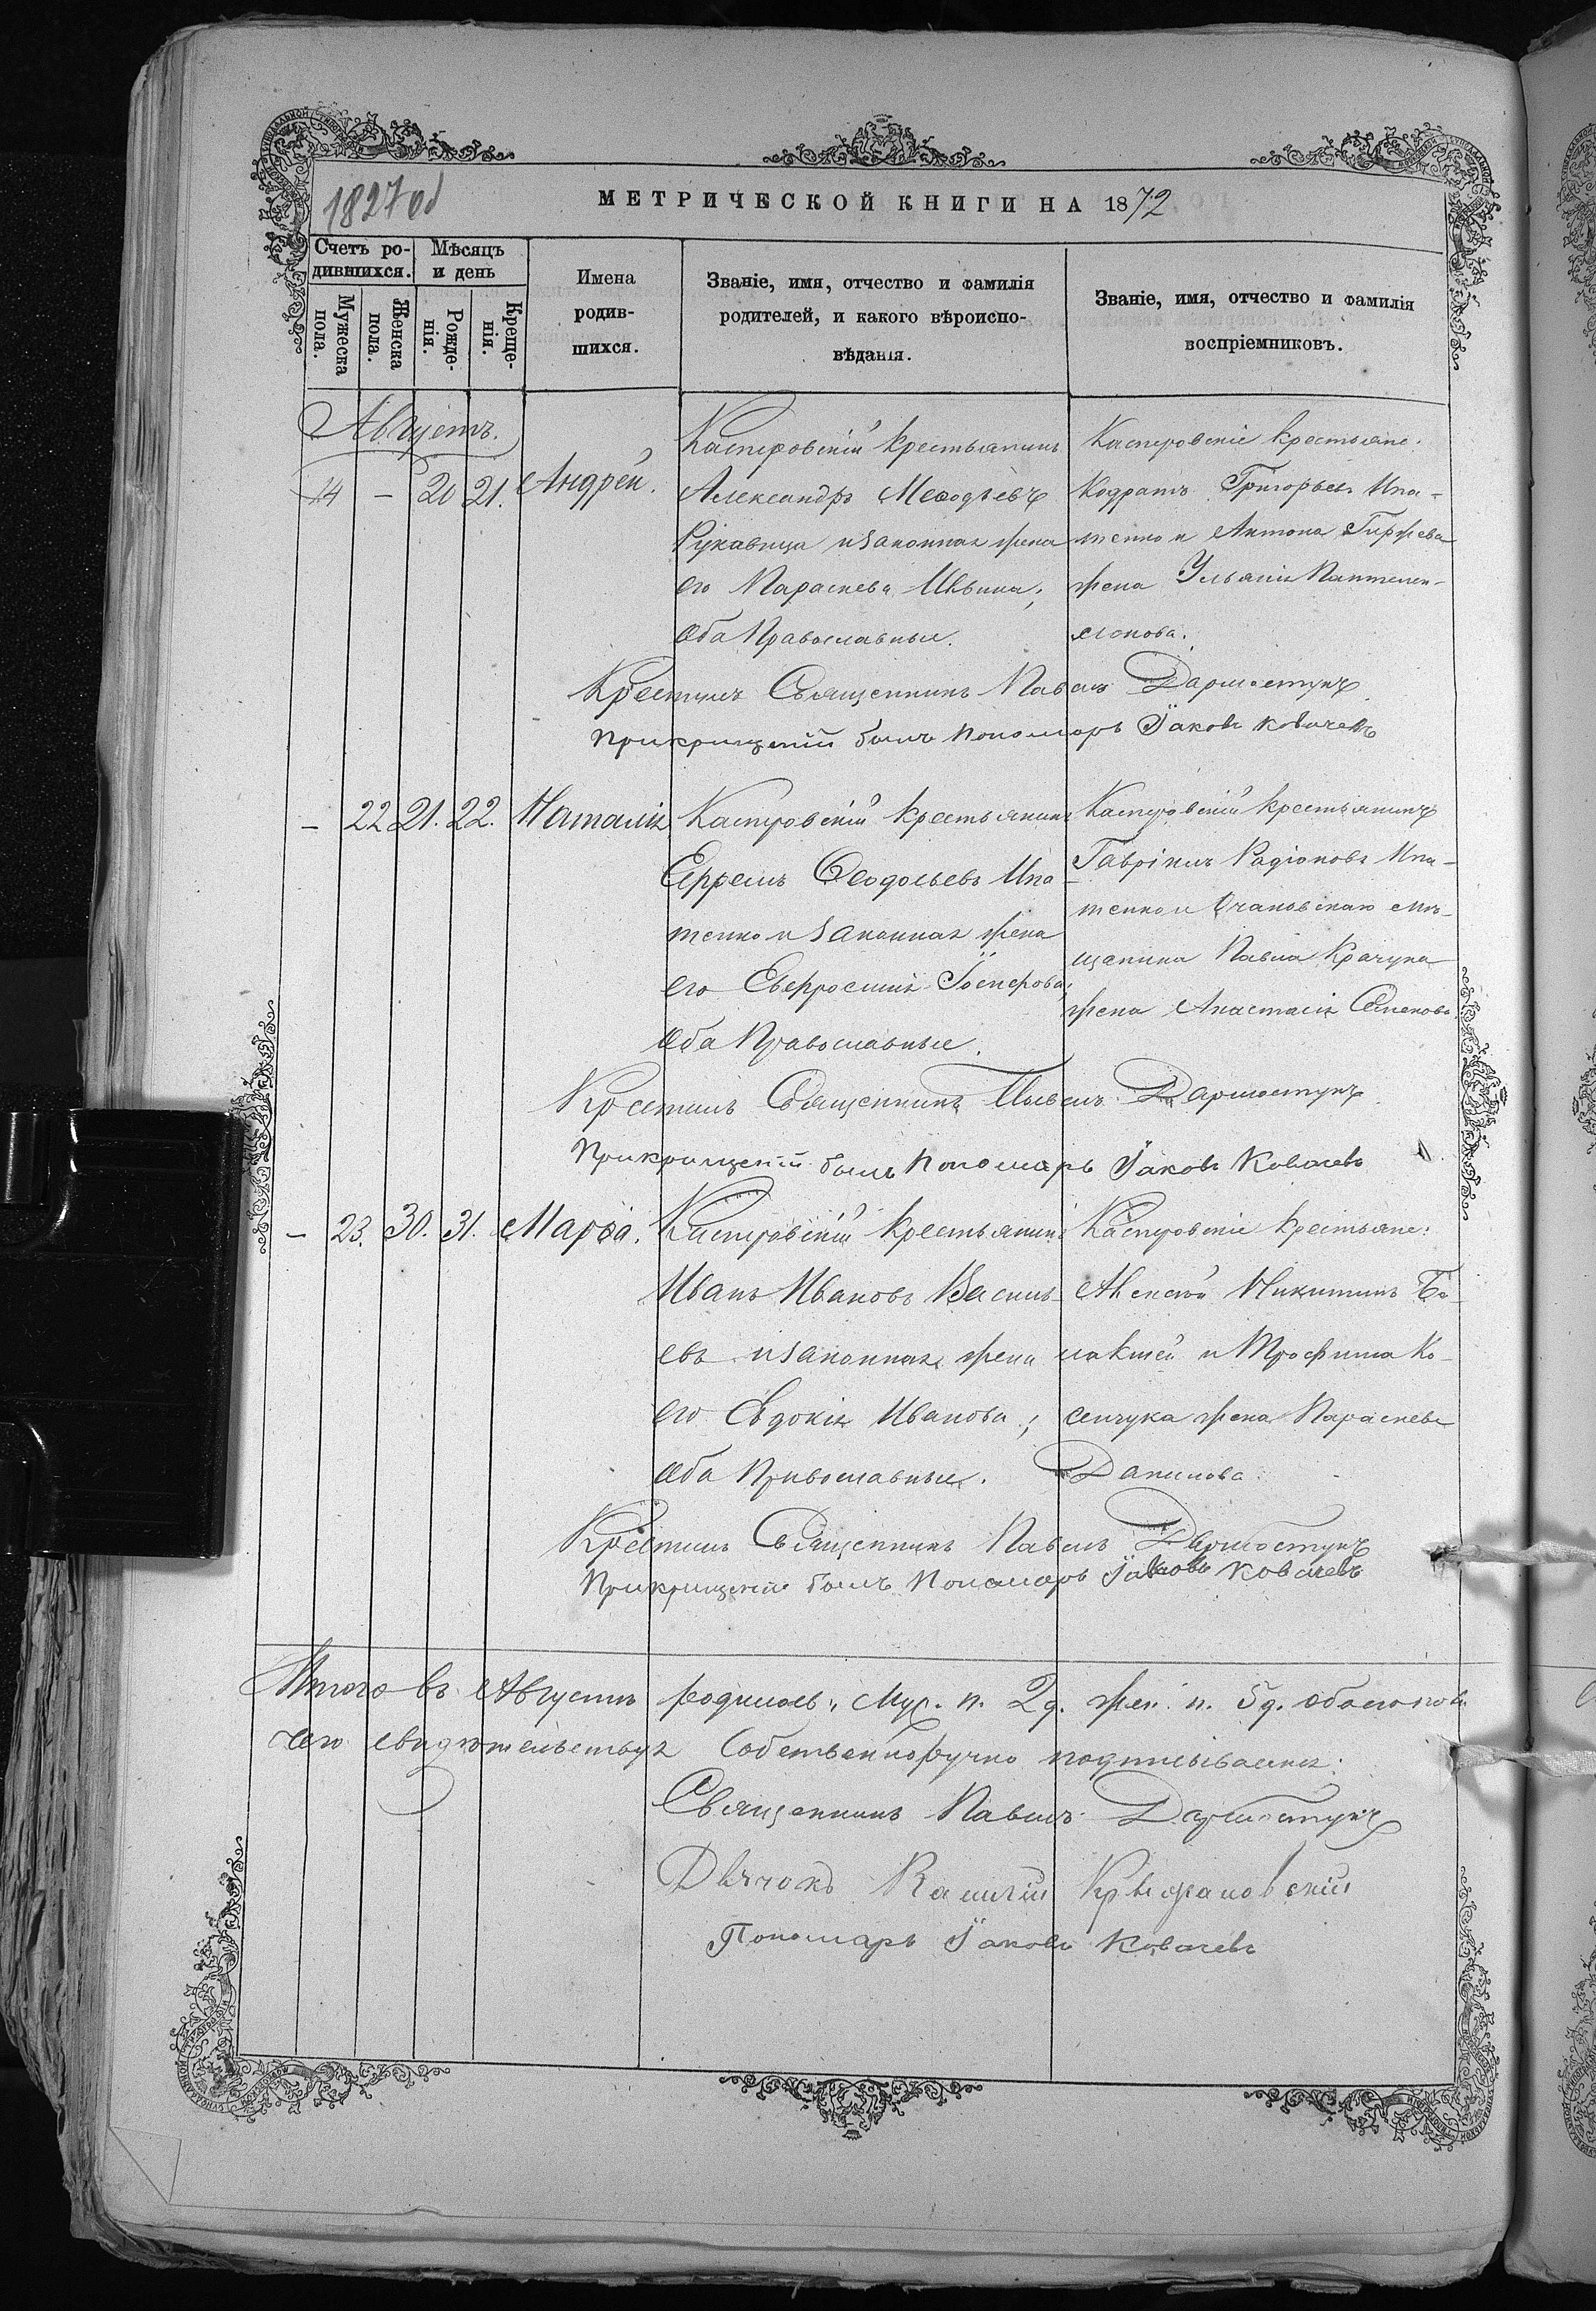 1827 об
МЕТРИЧЕСКОЙ КНИГИ НА 1872
Счетъ ро-
дившихся.
Мѣсяцъ
и день
Мужеска
пола.
Женска
пола.
Рожде-
нія.
Креще-
нія.
Имена
родив-
шихся.
Званіе, имя, отчество и фамилія
родителей, и какого вѣроиспо-
вѣданія.
Званіе, имя, отчество и фамилія
воспріемниковъ.
Августъ.
14 - 20 21. Андрей.
Касперовскій крестьянинъ
Александръ Меѳодіевъ
Рукавица и законная жена
его Параскева Ивлина;
оба Православные.
Касперовскіе крестьяне:
Кодратъ Григорьевъ Ипа-
тенко и Антона Гиржева
жена Ульянія Пантелеи-
монова.
Крестилъ Священникъ Павелъ Дармостукъ
Прикрищеніи былъ Пономарь Іаковъ Ковачевъ
- 22 21. 22. Наталія
Касперовскій крестьянинъ
Ефремъ Ѳеодосьевъ Ипа-
тенко и законная жена
его Евфросинія Іосифова;
оба Православные.
Касперовскій крестьянинъ
Гавріилъ Радіоновъ Ипа-
тенко и Очаковскаго мѣ-
щанина Павла Крачуна
жена Анастасія Семенова.
Крестилъ Священникъ Павелъ Дармостукъ.
Прикрищеніи былъ Пономарь Іаковъ Ковачевъ
- 23. 30. 31. Марѳа.
Касперовскій крестьянинъ
Иванъ Ивановъ Василь-
евъ и законная жена
его Евдокія Иванова;
оба Православные.
Касперовскіе крестьяне:
Алексѣй Никитинъ Ба-
лакшей и Трофима Ко-
сенчука жена Параскева
Данилова
Крестилъ Священникъ Павелъ Дармостукъ
Прикрищеніи былъ Пономарь Іаковъ Ковачевъ
Итого въ Августѣ родилось: Муж. п. 2 д. жен. п. 5 д. обоего пола
чего свидѣтельствуя Собственноручно подписываемся:
Священникъ Павелъ Дармостукъ
Дьячокъ Крыжановскій
Пономарь Іаковъ Ковачевъ